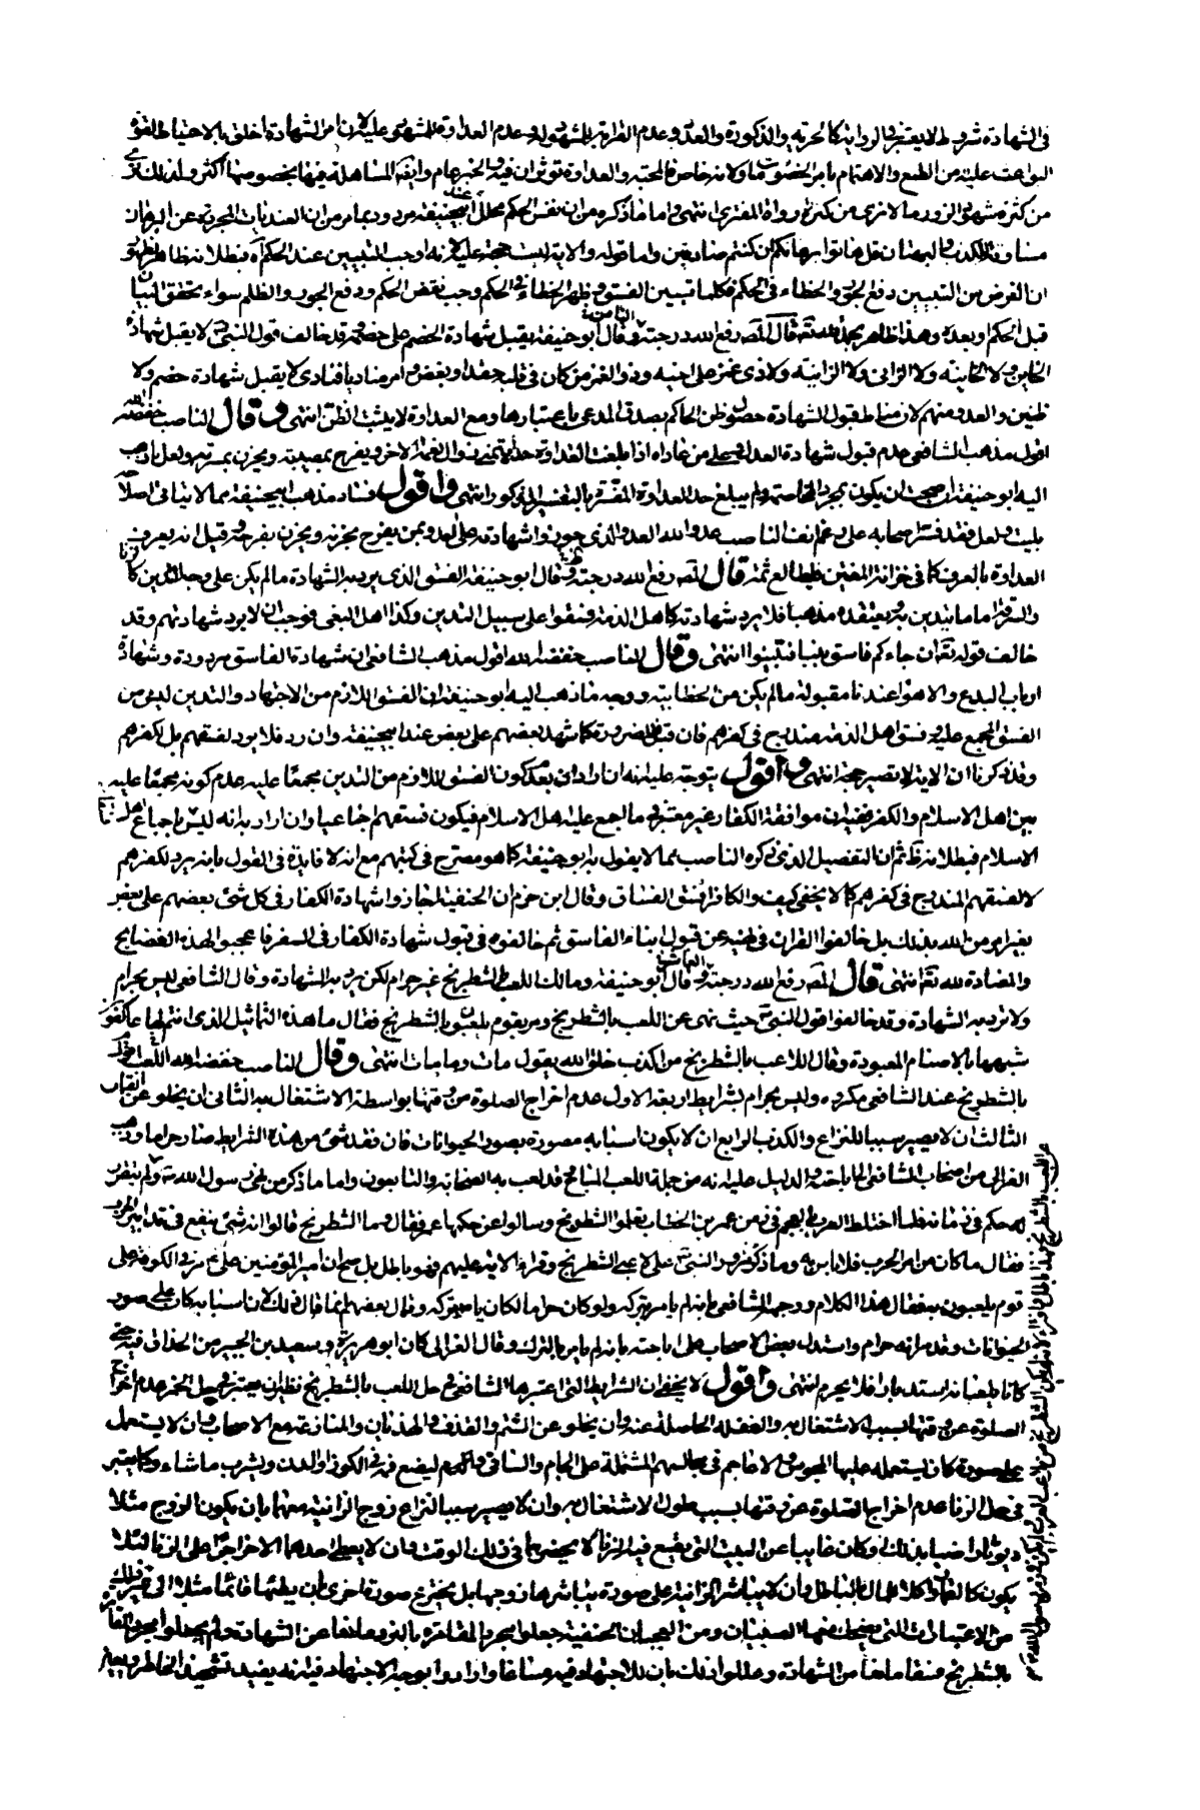 في الشهادة شروط لا يعتبر في الرواية كالحرية والذكورة والعدد وعدم القرابة للمشهود له وعدم العداوة للمشهود عليه لان امر الشهادة اخلق بالاحتياط لقوة
البواعث عليه من الطمع والاهتمام بامر الخصومات ولانه خاص فالمحبة والعداوة تؤثران فيه والخبر عام وايضا المساهلة فيها بخصوصها اكثر ولذلك ترى
من كثرة شهود الزور ما لا نرى من كثرة رواة المفترى انتهى واما ما ذكره من ان نفس الحكم محلل عند ابيحنيفة مردود بما مر من ان العنديات المجردة عن البرهان
مساوقة للكذب والبهتان قل هاتوا برهانكم ان كنتم صادقين واما قوله والاية ليست حجة عليه لانه اوجب التبيين عند الحكم آه فبطلانه ظاهر لظهور
ان الغرض من التبيين دفع الجور والخطاء في الحكم فكلما تبيين الفسق وظهر الخطاء في الحكم وجب نقض الحكم ودفع الجور والظلم سواء تحقق البيان
قبل الحكم وبعده وهذا ظاهر بحمد الله تعه قال المصه رفع الله درجته الثامنة وقال ابو حنيفة يقبل شهادة الخصم على خصمه وقد خالف قول النبي ص لا يقبل شهادة
الخاين ولا الخاينة ولا الزاني ولا الزانية ولا ذي غمز على اخيه وذو الغمز من كان في قلبه حقد او بغض وامر مناديا فنادى لا يقبل شهادة خصم ولا
ظنين والعدو متهم لان مناط قبول الشهادة حصول ظن الحاكم بصدق المدعي باعتبارها ومع العداوة لا يثبت الظن انتهى وقال الناصب خفضه الله
اقول مذهب الشافعي عدم قبول شهادة العدو على من عاداه اذا بلغت العداوة حدا يتمنى زوال نعمة الاخر ويفرح بمصيبته ويحزن بمسرته ولعل ما ذهب
اليه ابو حنيفة ارجح حيث ان يكون بمجرد المخاصمة ولم يبلغ حد العداوة المفسرة بالتفسير المذكور انتهى واقول فساد مذهب ابيحنيفة مما لا يتاتى اصلاحه
بليت ولعل فقد فسر اصحابه على رغم انف الناصب عدو الله العدو الذي جوزوا شهادته على العدو بمن يفرح بحزنه ويحزن بفرحه وقيل انه يعرف
العداوة بالعرف كما في خزانة المفتين فليطالع ثمة قال المصه رفع الله درجته وقال ابو حنيفة الفسق الذي يرد به الشهادة ما لم يكن على وجه التدين كالزنا
والسرقة اما ما يتدين به ويعتقده مذهبا فلا يرد شهادته كاهل الذمة فسقوا على سبيل التدين وكذا اهل البغي فوجب ان لا يرد شهادتهم وقد
خالف قوله تعه ان جاءكم فاسق بنبا فتبينوا انتهى وقال الناصب خفضه الله اقول مذهب الشافعي ان شهادة الفاسق مردودة وشهادة
ارباب البدع والاهواء عندنا مقبولة ما لم يكن من الخطابية ووجه ما ذهب اليه ابو حنيفة ان الفسق اللازم من الاجتهاد والتدين ليس من
الفسق المجمع عليه وفسق اهل الذمة مندرج في كفرهم فان قبل للضرورة كما شهد بعضهم على بعض عند ابيحنيفة وان رد فلا يرد لفسقهم بل لكفرهم
وقد ذكرنا ان الاية لا تصير حجة انتهى واقول يتوجه عليه انه ان اراد ان بعدم كون الفسق اللازم من التدين مجمعا عليه عدم كونه مجمعا عليه
بين اهل الاسلام والكفر ففيه ان موافقة الكفار غير معتبر في ما اجمع عليه اهل الاسلام فيكون فسقهم اجماعيا وان اراد به انه ليس باجماع اهل
الاسلام فبطلانه ظ ثم ان التفصيل الذي ذكره الناصب مما لا يقول به ابو حنيفة كما هو مصرح في كتبهم مع انه لا فايدة في القول بانه يرد لكفرهم
لا لفسقهم المندرج في كفرهم كما لا يخفى كيف والكافر افسق الفساق وقال ابن حزم ان الحنفية اجازوا شهادة الكفار في كل شئ بعضهم على بعض
بغير امر من الله بذلك بل خالفوا القران في نهيه عن قبول انباء الفاسق ثم خالفوه في قبول شهادة الكفار في السفر فاعجبوا لهذه الفضايح
والمضادة لله تعه انتهى قال المصه رفع الله درجته العاشرة وقال ابو حنيفة ومالك اللعب بالشطرنج غير حرام لكن يرد به الشهادة وقال الشافعي ليس بحرام
ولا ترد به الشهادة وقد خالفوا قول النبي ص حيث نهى عن اللعب بالشطرنج ومر بقوم يلعبون بالشطرنج فقال ما هذه التماثيل التي انتم لها عاكفون
شبهها بالاصنام المعبودة وقال اللاعب بالشطرنج من اكذب خلق الله يقول مات وما مات انتهى وقال الناصب خفضه الله اقول اللعب
بالشطرنج عند الشافعي مكروه وليس بحرام بشرايط اربعة الاول عدم اخراج الصلوة من وقتها بواسطة الاشتغال به الثاني ان يخلو عن القمار
الثالث ان لا يصير سببا للنزاع والكذب الرابع ان لا يكون اسبابه مصورة بصور الحيوانات فان فقد شئ من هذه الشرايط صار حراما وذهب
الغزالي من اصحاب الشافعي الى اباحته والدليل عليه انه من جملة اللعب المباح قد لعب به الصحابة والتابعون واما ما ذكر من نهى رسول الله ص فلم يتقرر
له حكم في زمانه فلما اختلط العرب بالعجم في زمن عمر بن الخطاب تعلموا الشطرنج وسالوا عن حكمها عمر فقال وما الشطرنج قالوا انه شئ ينفع في تدابير الحرب
فقال ما كان من امر الحرب فلا باس به وما ذكر من مرور النبي ص على لاعبي الشطرنج وقراءة الاية عليهم فهو باطل بل صح ان امير المؤمنين علي ع مر في الكوفة على
قوم يلعبون به فقال هذا الكلام ووجهه الشافعي بانه لم يامر بتركه ولو كان حراما لكان يامر بتركه وقال بعضهم انما قال ذلك لان اسبابه كان على صور
الحيوانات وقد مر انه حرام واستدل بعض الاصحاب على اباحته بانه لم يامر بالترك وقال الغزالي كان ابو هريرة وسعيد بن الجبير من الحذاق فيه حتى
كانا يلعبانه استدبارا فلا يحرم انتهى واقول لا يخفى ان الشرايط التي اعتبرها الشافعي في حل اللعب بالشطرنج نظير ان يعتبر في حل الخمر عدم اخراج
الصلوة عن وقتها بسبب الاشتغال به والغفلة الحاصلة عنه وان يخلو عن الشتم والقذف والهذيان والمنازعة مع الاصحاب وان لا يستعمل
على صورة كان يستعمله عليها المجوس والاعاجم في مجالسهم المشتملة على الجام والساقي بل يضع فمه في الكوز او الدن ويشرب ما شاء وكما يعتبر
في حل الزنا عدم اخراج الصلوة عن وقتها بسبب طول الاشتغال به وان لا يصير سببا لنزاع زوج الزانية معها بان يكون الزوج مثلا
ديوثا راضيا بذلك وكان غايبا عن البيت التي يقع فيه الزنا لا يحضرها في ذلك الوقت وان لا يعطى احدهما الاخر اجرا على الزنا لئلا
يكون كالقمار واكلا للمال بالباطل وان لا يباشر الزانية على صورة يباشرها زوجها بل يخترع صورة اخرى بان يطئها قائما مثلا الى غير ذلك
من الاعتبارات التي يضحك منها الصبيان ومن العجب ان الحنفية جعلوا مجرد المقامرة بالنرد مانعا عن الشهادة ولم يجعلوا مجرد القمار
بالشطرنج فسقا مانعا من الشهادة وعللوا ذلك بان للاجتهاد فيه مساغا وارادوا بوجه الاجتهاد فيه انه يفيد تشحيذ الخاطر